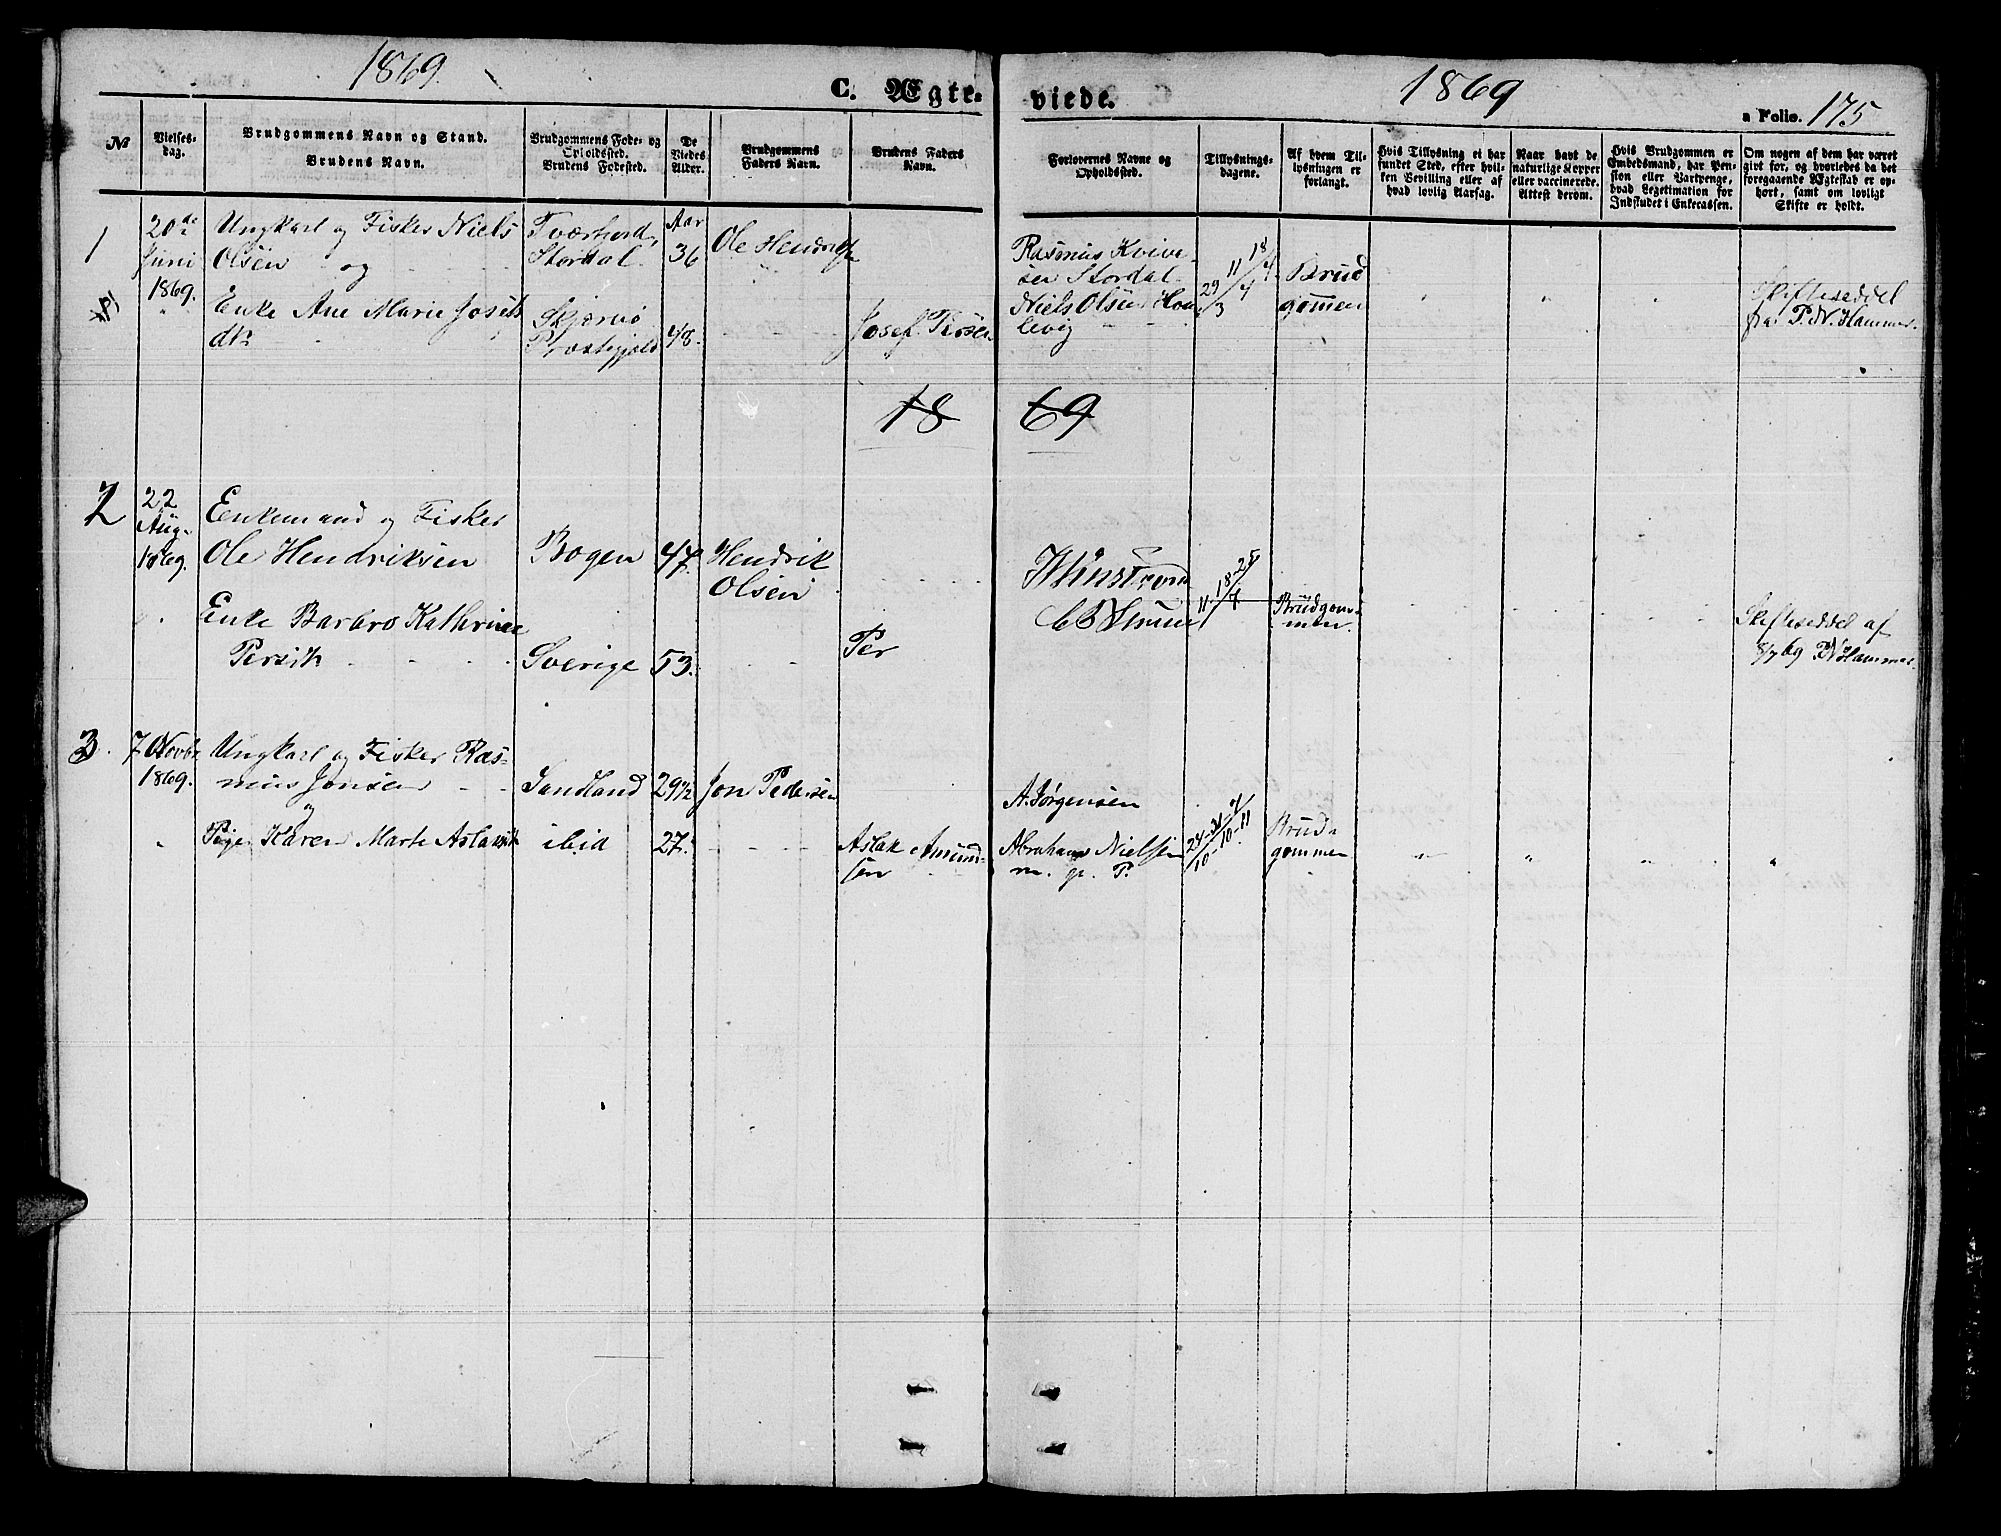 1869.
1869
C. Ægte-
viede.
a Folio. 175
№
Vielses-
dag.
Brudgommens Navn og Stand.
Brudens Navn.
Brudgommens Føde- og
Opholdssted.
Brudens Fødested.
De
Viedes
Alder.
Brudgommens
Faders Navn.
Brudens Faders
Navn.
Forlovernes Navne og
Opholdssted.
Tillysnings-
dagene.
Af hvem Til-
lysningen er
forlangt.
Hvis Tillysning ei har
fundet Sted, efter hvil-
ken Bevilling eller af
hvad lovlig Aarsag.
Naar havt de
naturlige Kopper
eller vaccinerede.
Attest derom.
Hvis Brudgommen er
Embedsmand, har Pen-
sion eller Vartpenge,
hvad Legitimation for
Indskudet i Enkecassen.
Om nogen af dem har været
givt for, og hvorledes da det
foregaaende Ægteskab er op-
hørt, samt om lovligt
Skifte er holdt.
1
20de
Juni
1869.
Ungkarl og Fisker Niels
Olsen og
Enke Ane Marie Josefs
dtr
Tværfjord,
Stordal
Skjervø
Præstegjeld
Aar
36
48.
Ole Hendriksen
Josef Persen
Rasmus Kvive-
sen Stordal
Niels Olsen
levig
29/3 11/4 18/4
Brud
gommen
Skifteseddel
fra P. N. Hammer.
18
69
2
22
Aug.
1869.
Enkemand og Fisker
Ole Hendriksen
Enke Barbro Kathrine
Persdtr
Bogen
Sverige
47.
53.
Hendrik
Olsen
Per
11-18-25/7
Brudgom-
men.
Skifteseddel af
8/7 69 P.N. Hammer.
3.
7 Novbr
1869.
Ungkarl og Fisker Ras-
mus Jonsen
og
Pige Karen Marte Aslaksdtr
Sandland
ibid
29 1/2
27.
Jon Pedersen
Aslak Amund-
sen
A. Jørgensen
Abrahams Nielsen
m. p. P.
24-31-7/10-10-11
Brud-
gommen